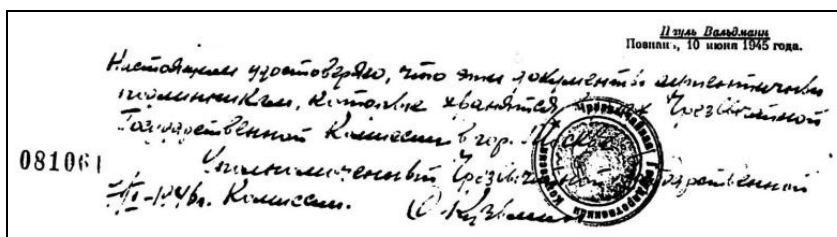 Пауль Вальдманн
Познань, 10 июня 1945 года.
Настоящим удостоверяю, что эти документы аутентичны
подлинникам, которые хранятся в Чрезвычайной
Государственной Комиссии в гор. Москве
081061
Уполномоченный Чрезвычайной Государственной
1946г. Комиссии. С. Кузьмин